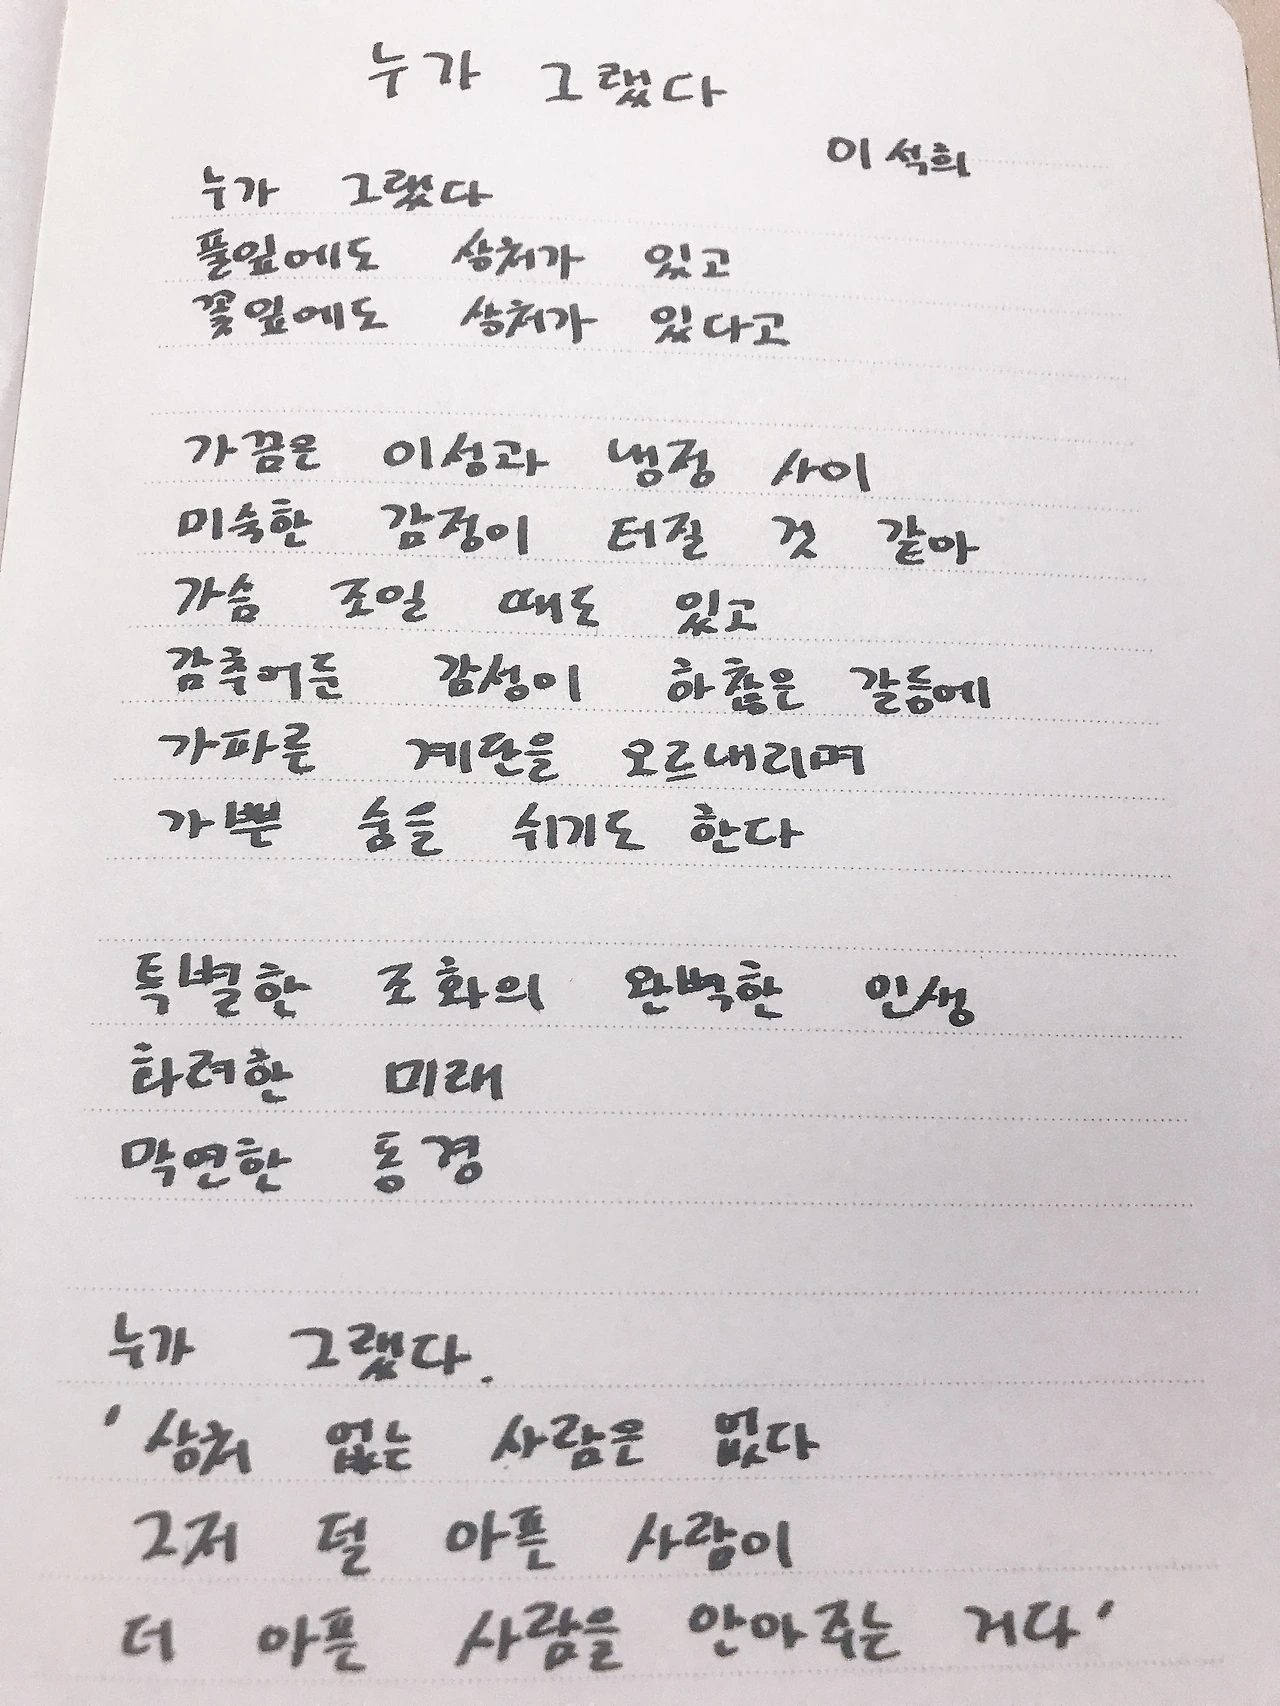 누가 그랬다
이석희
누가 그랬다
풀잎에도 상처가 있고
꽃잎에도 상처가 있다고
가끔은 이성과 냉정 사이
미숙한 감정이 터질 것 같아
가슴 조일 때도 있고
감추어둔 감성이 하찮은 갈등에
가파른 계단을 오르내리며
가쁜 숨을 쉬기도 한다
특별한 조화의 완벽한 인생
화려한 미래
막연한 동경
누가 그랬다.
'상처 없는 사람은 없다
그저 덜 아픈 사람이
더 아픈 사람을 안아주는 거다'